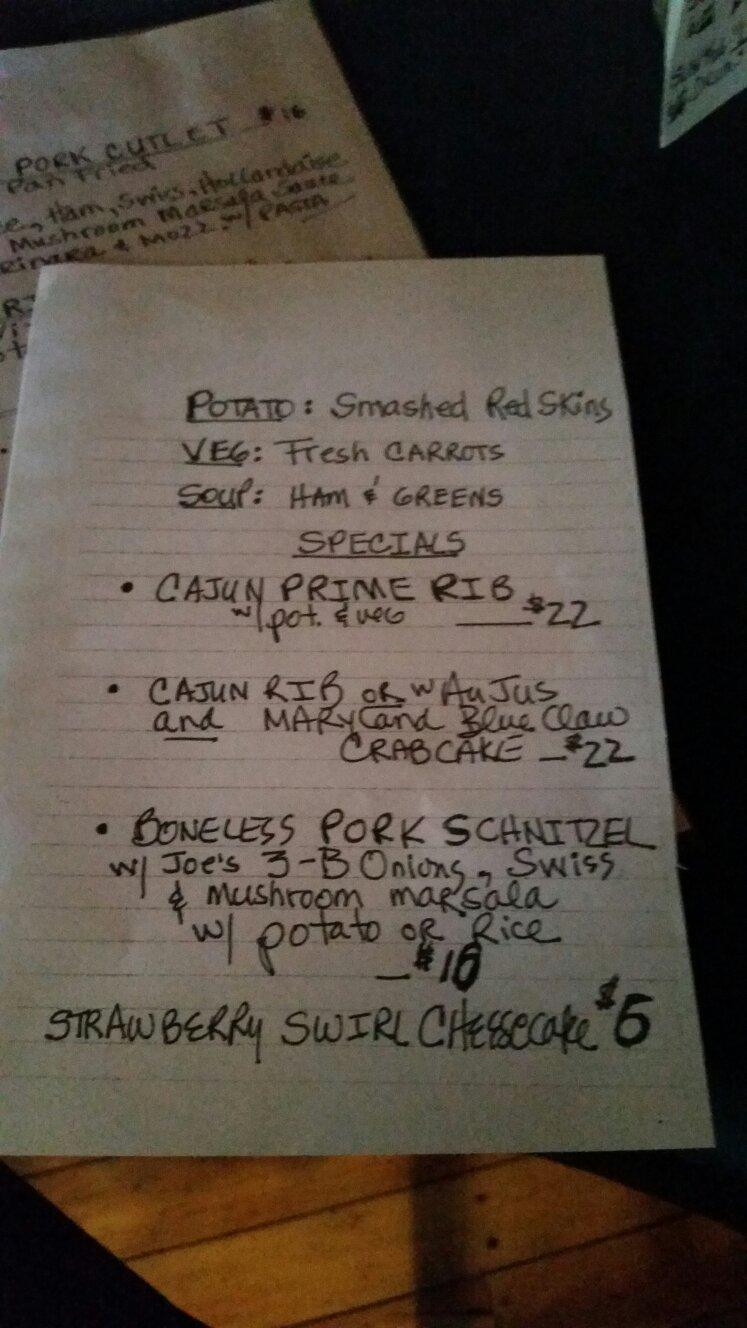 PORK CUTLET $16
Pan Fried
Ham, Swiss, Hollandaise
Mushroom Marsala Sauce
& MOZZ. w/ PASTA
POTATO: Smashed Red Skins
VEG: Fresh CARROTS
SOUP: HAM & GREENS
SPECIALS
• CAJUN PRIME RIB
w/ pot. & veg $22
• CAJUN RIB OR w Au Jus
and MARYLand Blue Claw
CRABCAKE $22
• BONELESS PORK SCHNITZEL
w/ Joe's 3-B Onions, Swiss
& Mushroom marsala
w/ potato OR Rice
STRAWBERRY SWIRL CHEESECake